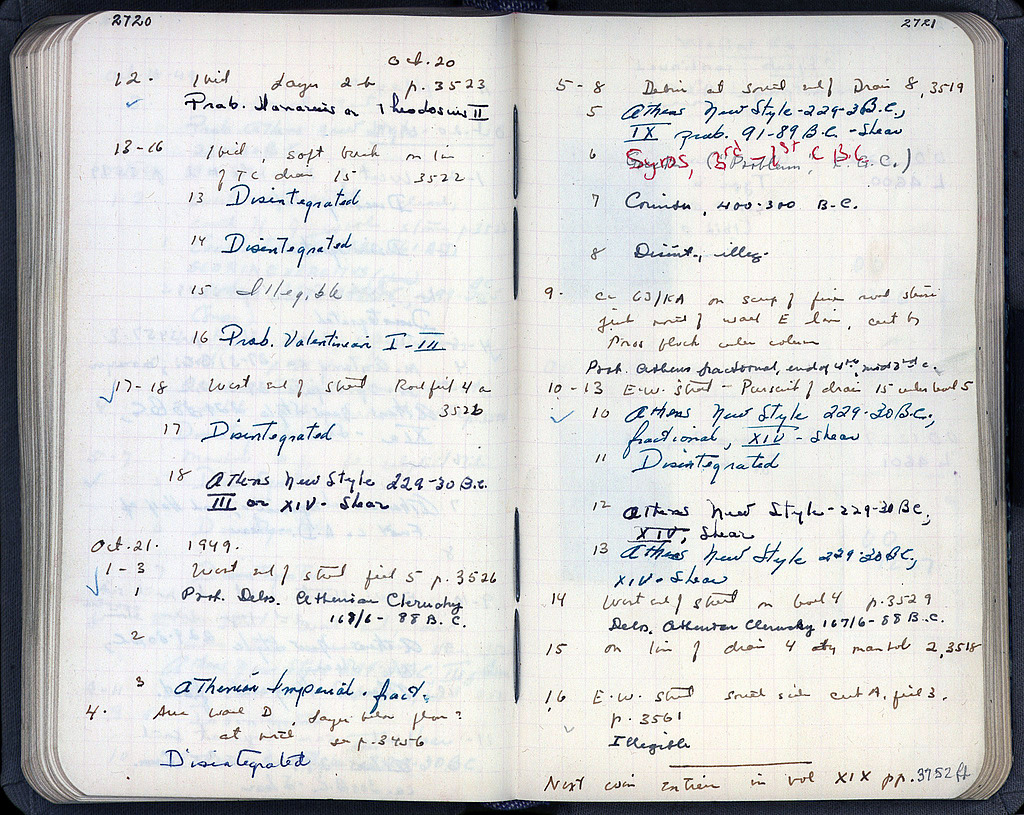 2720
Oct. 20
12. Ibid layer 2b p. 3523
Prob. Honorius or Theodosius II
13-16 Ibid, soft bank on line
TC drain 15 3522
13 Disintegrated
14 Disintegrated
15 Illegible
16 Prob. Valentinian I-III
17-18 West end of street Road fill 4a
3526
17 Disintegrated
18 Athens New Style 229-30 B.C.
III or XIV - Shear
Oct. 21. 1949.
1-3 West end of street fill 5 p. 3526
1 Prob. Delos. Athenian Cleruchy
167/6 - 88 B.C.
2
3 Athenian Imperial. fract.
4. wall D, layer below floor?
at p. 3456
Disintegrated
2721
5-8 Debris at south end of Drain 8, 3519
5 Athens New Style-229-30 B.C.,
IX prob. 91-89 B.C. - Shear
6 Syros, 3rd - 1st C BC
(Problem, E.G.C.)
7 Corinth, 400-300 B.C.
8 Disint., illeg.
9. ca 63/KA on
just north of wall E line, cut by
block under column
Prob. Athens fractional, end of 4th, mid 2nd c.
10-13 E.W. street - Pursuit of drain 15 under 5
10 Athens New Style 229-30 B.C.,
fractional, XIV - Shear
11 Disintegrated
12 Athens New Style - 229-30 B.C.,
XIV, Shear
13 Athens New Style 229-30 B.C.,
XIV - Shear
14 West end of street on 4 p. 3529
Delos. Athenian Cleruchy 167/6-88 B.C.
15 on line of drain 4 manhole 2, 3518
16 E.W. street south side cut A, fill 3.
p. 3561
Illegible
Next coin entries in vol XIX pp. 3752 ff